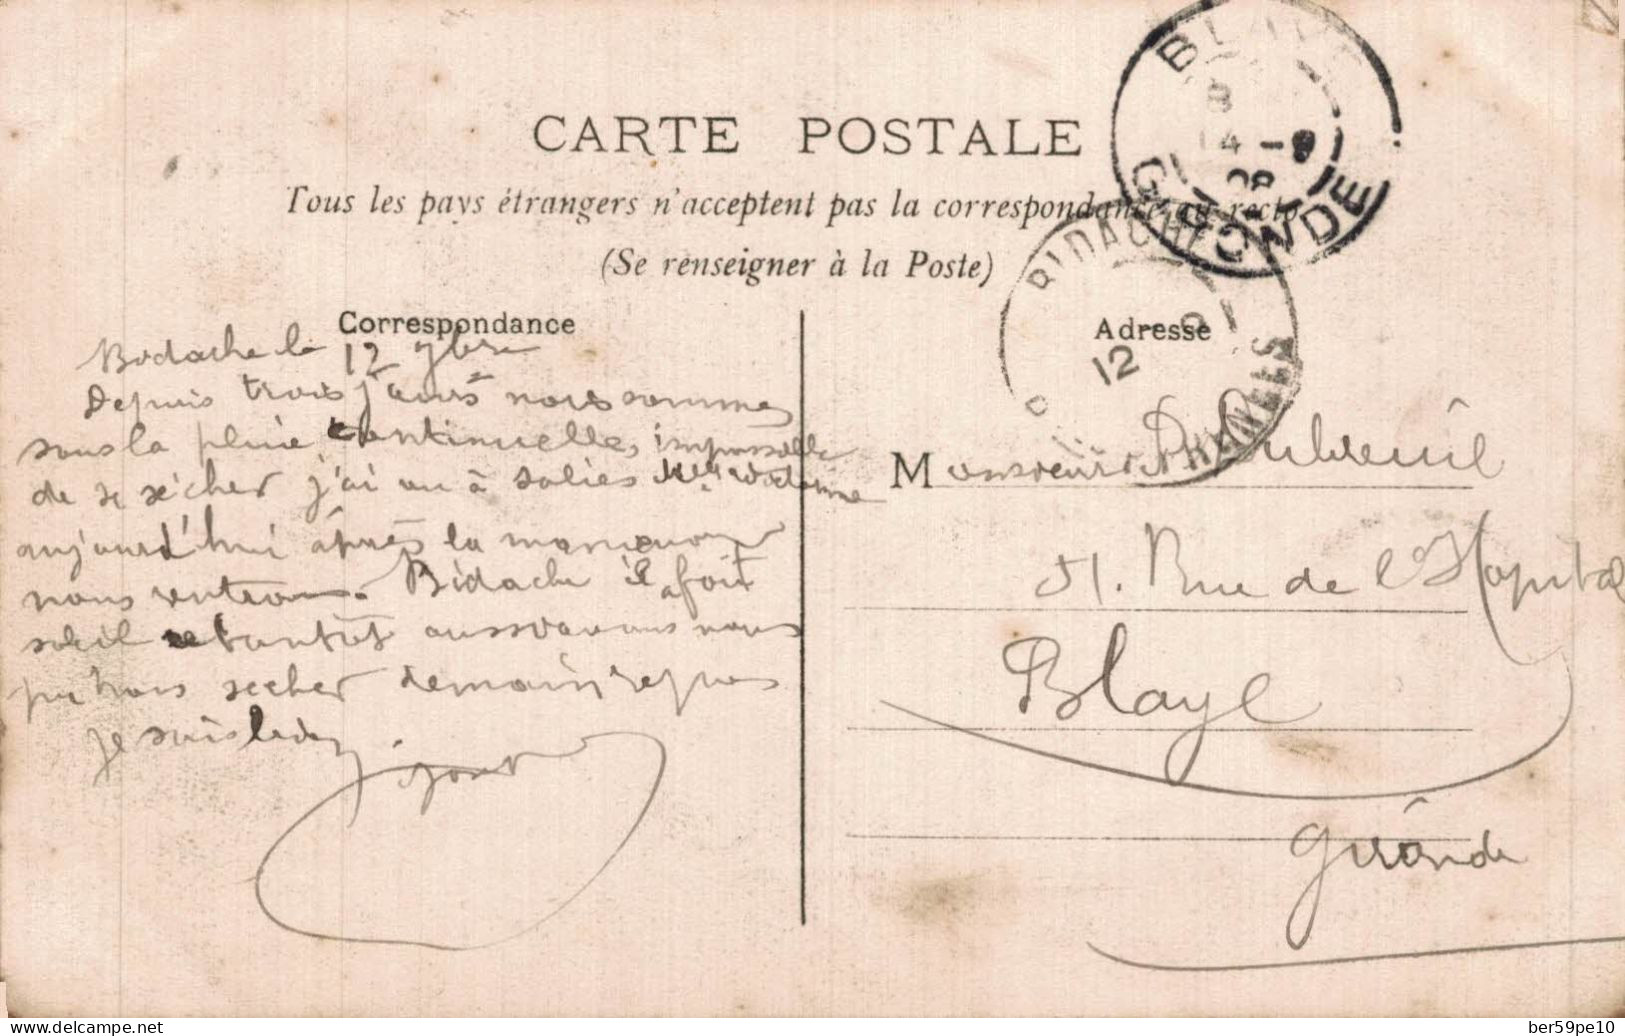 CARTE POSTALE
Tous les pays étrangers n'acceptent pas la correspondance au recto
(Se renseigner à la Poste)
Correspondance
Bidache le 12 9bre
Depuis trois jours nous sommes
sous la pluie continuelle, impossible
de se sécher j'ai vu à Salies
aujourd'hui après la manoeuvre
nous rentrons Bidache il fait
soleil et tantôt aussi avons nous
pu nous secher demain repos
je suis
Adresse
Monsieur Dubreuil
51. Rue de l'Hopital
Blaye
Gironde
BLAYE
GIRONDE
BIDACHE
12
ber59pe10